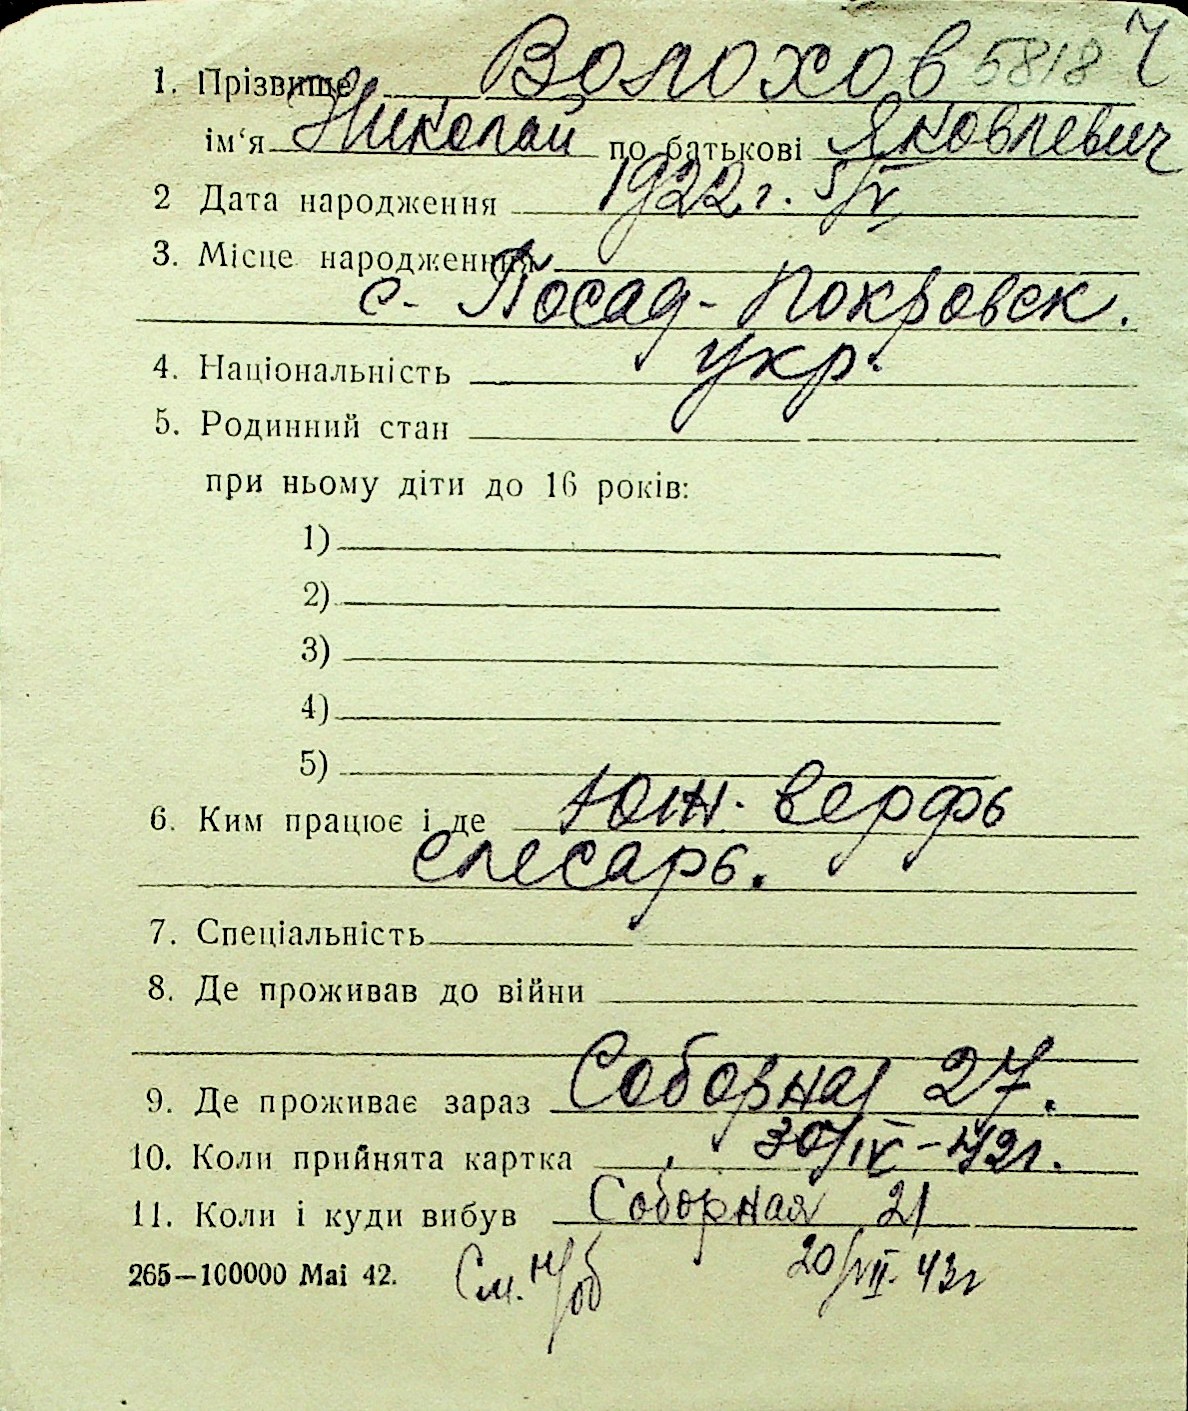 1. Прізвище Волохов 5818 Ч
ім‘я Николай по батькові Яковлевич
2 Дата народження 1922 г. 5/V
3. Місце народження
с- Посад-Покровск.
4. Національність укр.
5. Родинний стан
при ньому діти до 16 років:
1)
2)
3)
4)
5)
6. Ким працює і де Юж. верфь
слесарь.
7. Спеціальність
8. Де проживав до війни
9. Де проживає зараз Соборная 27.
10. Коли прийнята картка 30/IV-42г.
11. Коли і куди вибув Соборная 21
265—100000 Mai 42. См. н/об 20/VII-43г